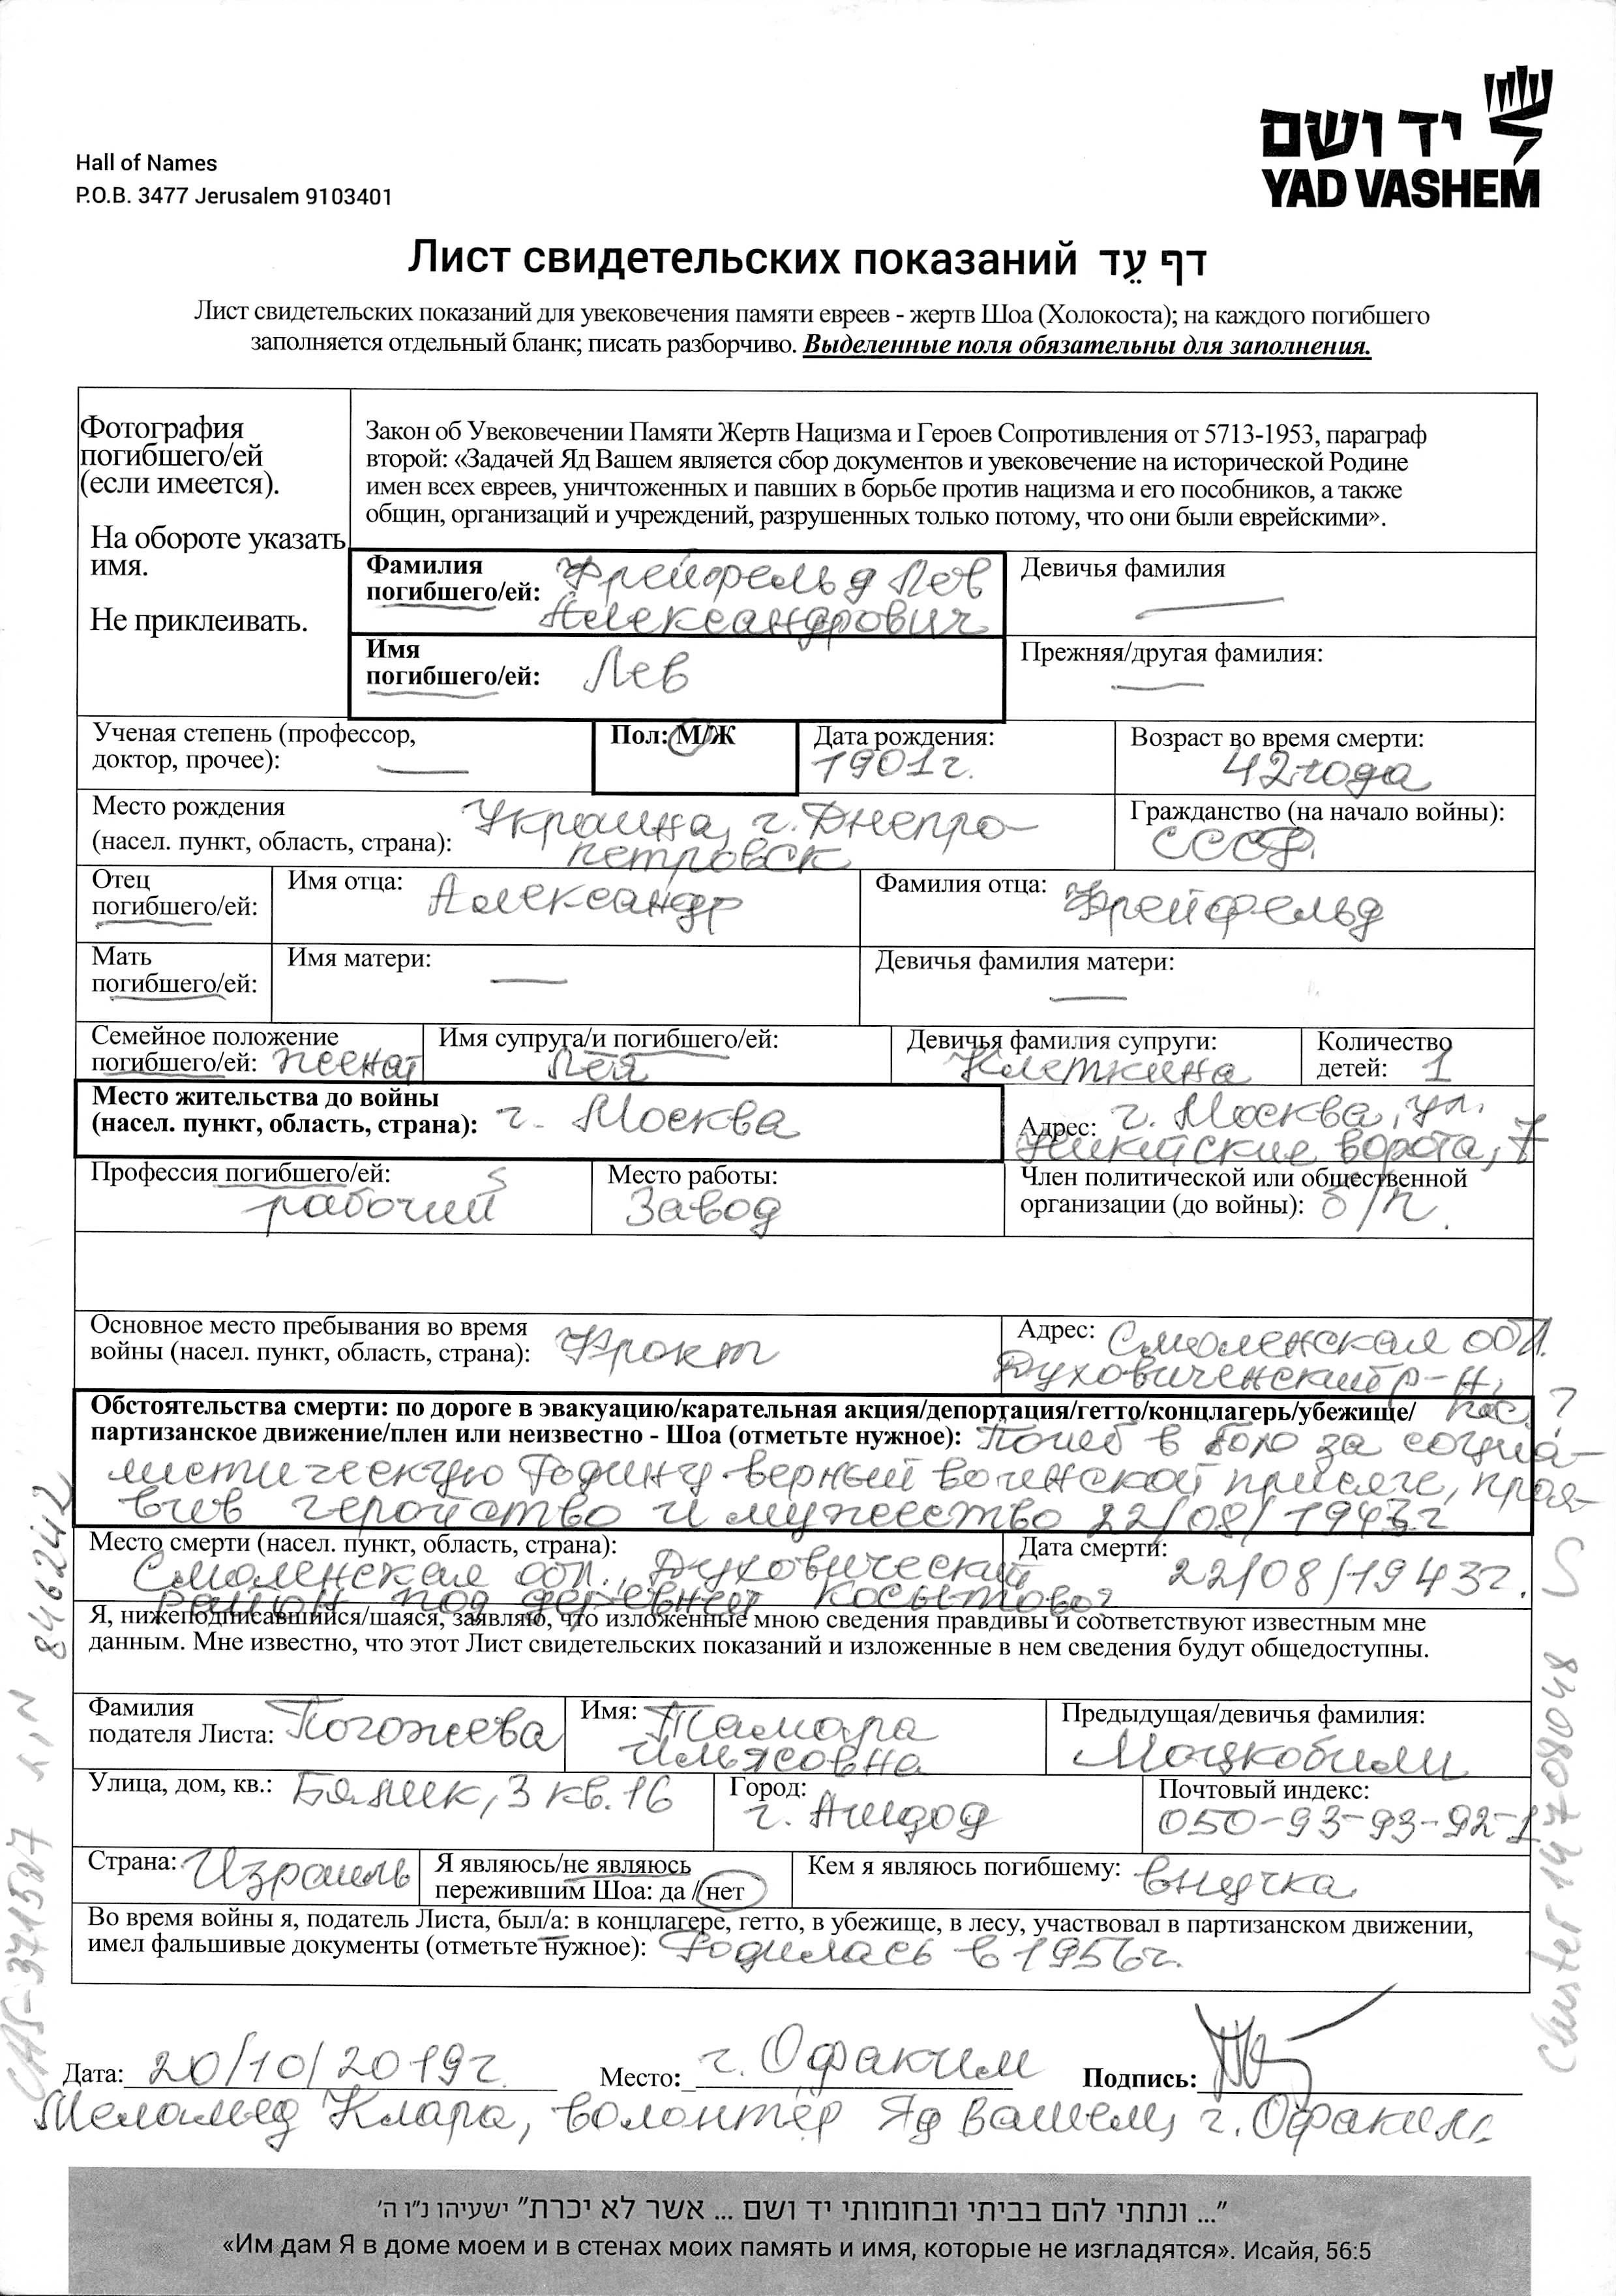 יד ושם
YAD VASHEM
Hall of Names
P.O.B. 3477 Jerusalem 9103401
Лист свидетельских показаний דף עֵד
Лист свидетельских показаний для увековечения памяти евреев - жертв Шоа (Холокоста); на каждого погибшего
заполняется отдельный бланк; писать разборчиво. Выделенные поля обязательны для заполнения.
Фотография
погибшего/ей
(если имеется).
На обороте указать
имя.
Не приклеивать.
Закон об Увековечении Памяти Жертв Нацизма и Героев Сопротивления от 5713-1953, параграф
второй: «Задачей Яд Вашем является сбор документов и увековечение на исторической Родине
имен всех евреев, уничтоженных и павших в борьбе против нацизма и его пособников, а также
общин, организаций и учреждений, разрушенных только потому, что они были еврейскими».
Фамилия
погибшего/ей: Фрейфельд Лев
Александрович
Девичья фамилия —
Имя
погибшего/ей: Лев
Прежняя/другая фамилия: —
Ученая степень (профессор,
доктор, прочее): —
Пол: М/Ж
Дата рождения:
1901г.
Возраст во время смерти:
42 года
Место рождения
(насел. пункт, область, страна): Украина, г. Днепро-
петровск
Гражданство (на начало войны):
СССР.
Отец
погибшего/ей:
Имя отца: Александр
Фамилия отца: Фрейфельд
Мать
погибшего/ей:
Имя матери: —
Девичья фамилия матери: —
Семейное положение
погибшего/ей: женат
Имя супруга/и погибшего/ей:
Лея
Девичья фамилия супруги:
Клеткина
Количество
детей: 1
Место жительства до войны
(насел. пункт, область, страна): г. Москва
Адрес: г. Москва, ул.
ворота, 7
Профессия погибшего/ей:
рабочий S
Место работы:
Завод
Член политической или общественной
организации (до войны): б/п.
Основное место пребывания во время
войны (насел. пункт, область, страна): Фронт
Адрес: Смоленская обл.
Духовиченский р-н,
пос. ?
Обстоятельства смерти: по дороге в эвакуацию/карательная акция/депортация/гетто/концлагерь/убежище/
партизанское движение/плен или неизвестно - Шоа (отметьте нужное): Погиб в бою за социа-
листическую Родину верный воинской присяге, проя-
вив геройство и мужество 22/08/1943г
Место смерти (насел. пункт, область, страна):
Смоленская обл., Духовический
район под деревней Косытово?
Дата смерти: 22/08/1943г. S
Я, нижеподписавшийся/шаяся, заявляю, что изложенные мною сведения правдивы и соответствуют известным мне
данным. Мне известно, что этот Лист свидетельских показаний и изложенные в нем сведения будут общедоступны.
Фамилия
подателя Листа: Погожева
Имя: Тамара
Ильясовна
Предыдущая/девичья фамилия:
Моцкобили
Улица, дом, кв.: Бялик, 3 кв. 16
Город:
г. Ашдод
Почтовый индекс:
050-93-93-92-1
Страна: Израиль
Я являюсь/не являюсь
пережившим Шоа: да / нет
Кем я являюсь погибшему: внучка
Во время войны я, податель Листа, был/а: в концлагере, гетто, в убежище, в лесу, участвовал в партизанском движении,
имел фальшивые документы (отметьте нужное): Родилась в 1956г.
Дата: 20/10/2019г. Место: г. Офаким Подпись:
Меламед Клара, волонтёр Яд Вашем, г. Офаким.
"... ונתתי להם בביתי ובחומותי יד ושם ... אשר לא יכרת" ישעיהו נ"ו ה'
«Им дам Я в доме моем и в стенах моих память и имя, которые не изгладятся». Исайя, 56:5
8462442
Cluster 147080048